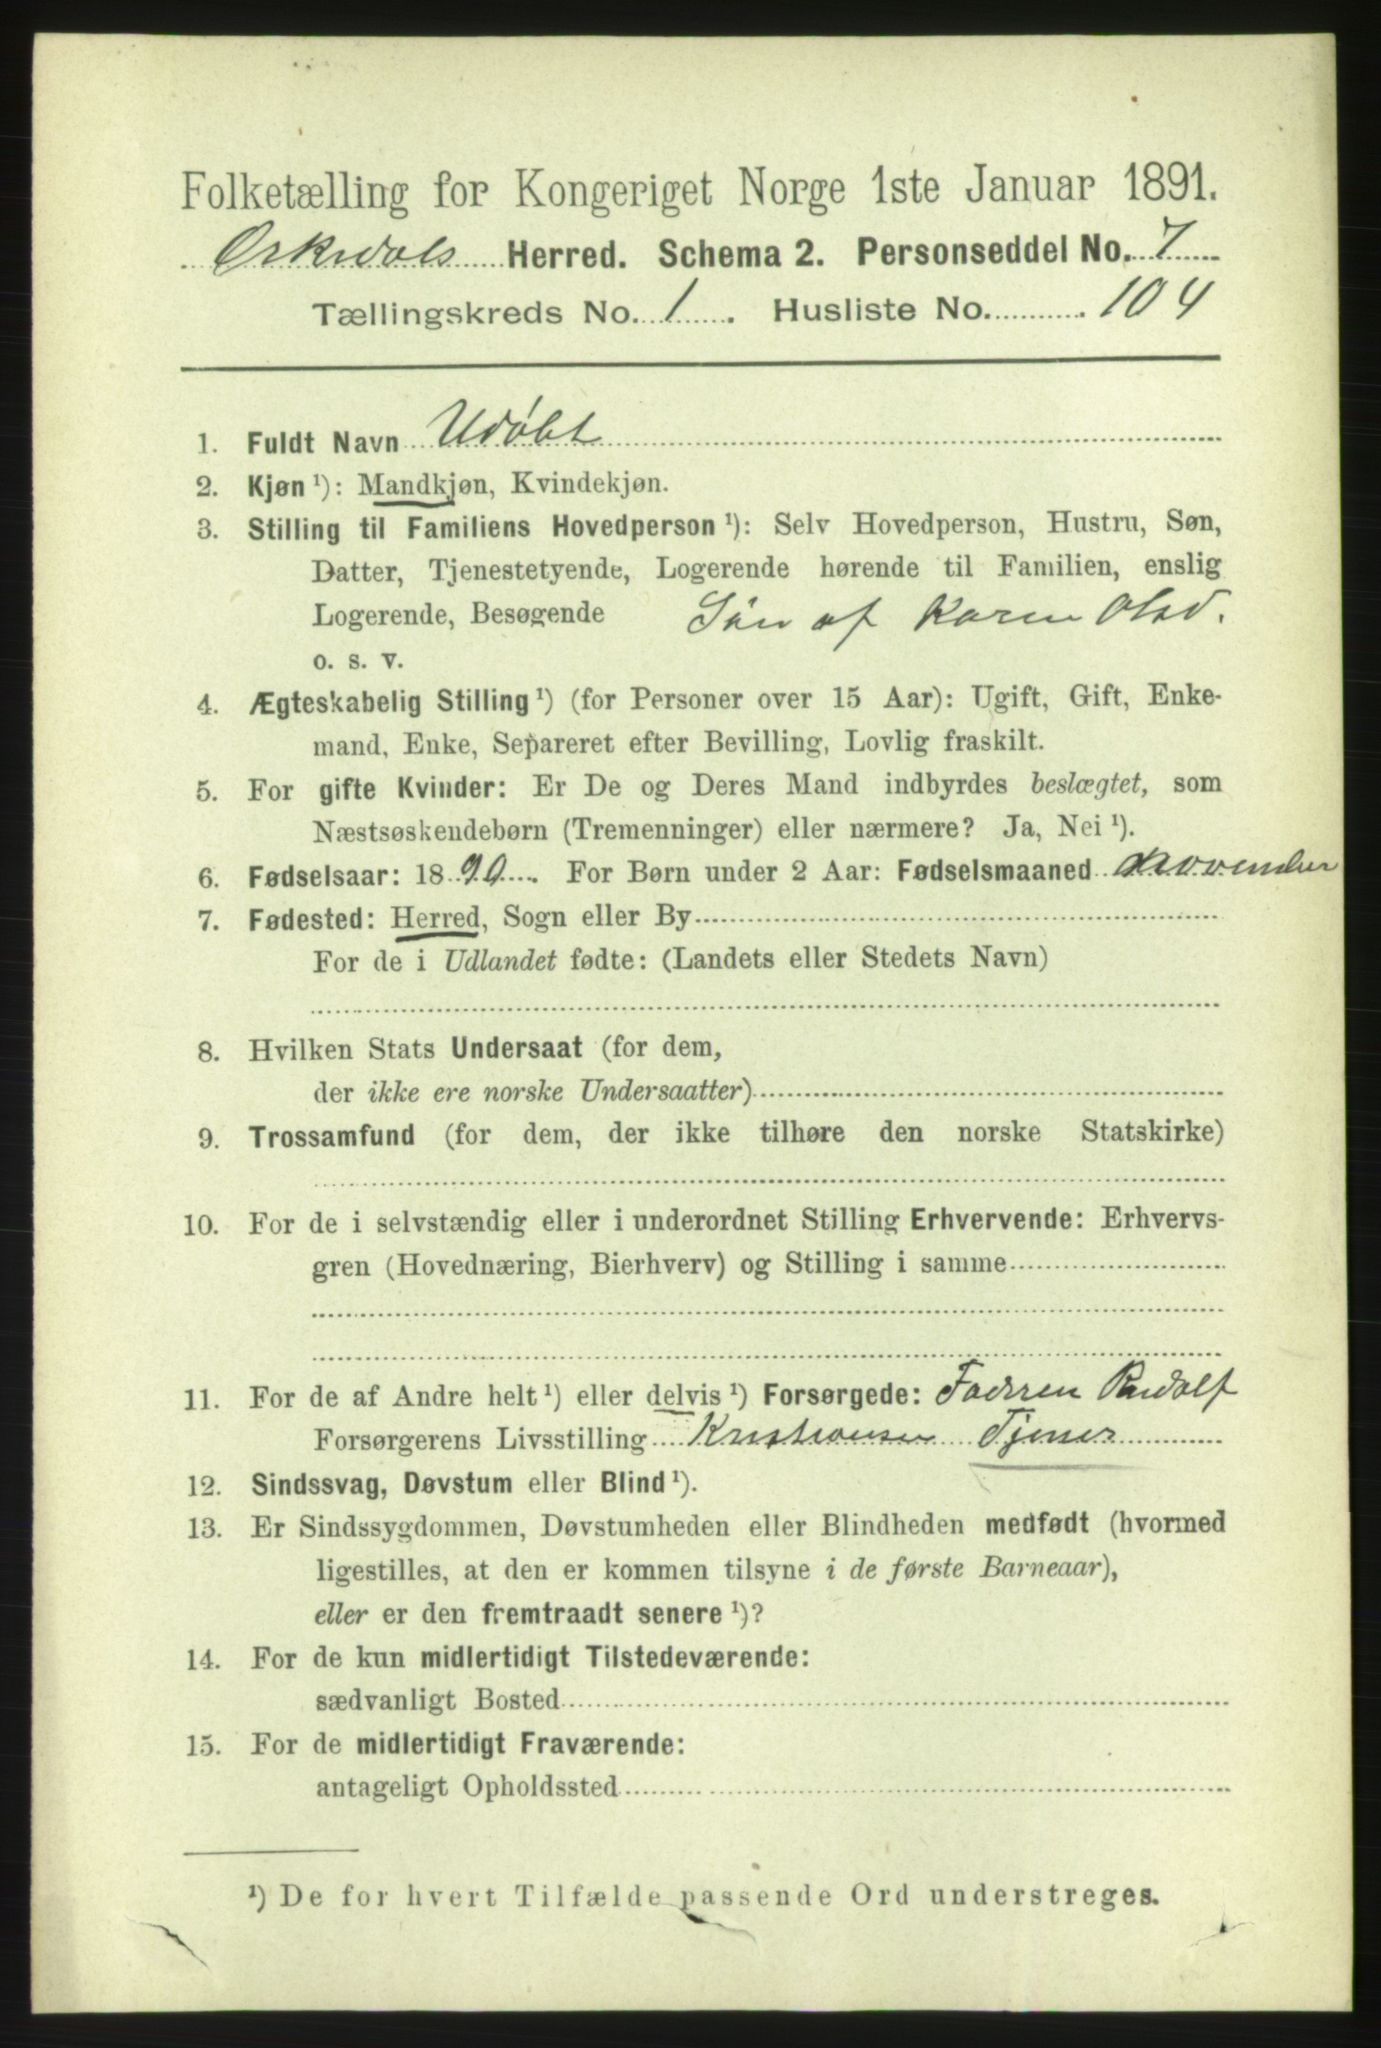 Folketælling for Kongeriget Norge 1ste Januar 1891.
Orkedals Herred. Schema 2. Personseddel No. 7
Tællingskreds No. 1. Husliste No. 104
1. Fuldt Navn Udøbt
2. Kjøn ¹): Mandkjøn, Kvindekjøn.
3. Stilling til Familiens Hovedperson ¹): Selv Hovedperson, Hustru, Søn,
Datter, Tjenestetyende, Logerende hørende til Familien, enslig
Logerende, Besøgende Søn af Karen Olsd.
o. s. v.
4. Ægteskabelig Stilling ¹) (for Personer over 15 Aar): Ugift, Gift, Enke-
mand, Enke, Separeret efter Bevilling, Lovlig fraskilt.
5. For gifte Kvinder: Er De og Deres Mand indbyrdes beslægtet, som
Næstsøskendebørn (Tremenninger) eller nærmere? Ja, Nei ¹).
6. Fødselsaar: 1890. For Børn under 2 Aar: Fødselsmaaned November
7. Fødested: Herred, Sogn eller By
For de i Udlandet fødte: (Landets eller Stedets Navn)
8. Hvilken Stats Undersaat (for dem,
der ikke ere norske Undersaatter)
9. Trossamfund (for dem, der ikke tilhøre den norske Statskirke)
10. For de i selvstændig eller i underordnet Stilling Erhvervende: Erhvervs-
gren (Hovednæring, Bierhverv) og Stilling i samme
11. For de af Andre helt ¹) eller delvis ¹) Forsørgede: Faderen Rudolf
Forsørgerens Livsstilling Kristiansen Tjener
12. Sindssvag, Døvstum eller Blind ¹).
13. Er Sindssygdommen, Døvstumheden eller Blindheden medfødt (hvormed
ligestilles, at den er kommen tilsyne i de første Barneaar),
eller er den fremtraadt senere ¹)?
14. For de kun midlertidigt Tilstedeværende:
sædvanligt Bosted
15. For de midlertidigt Fraværende:
antageligt Opholdssted
¹) De for hvert Tilfælde passende Ord understreges.